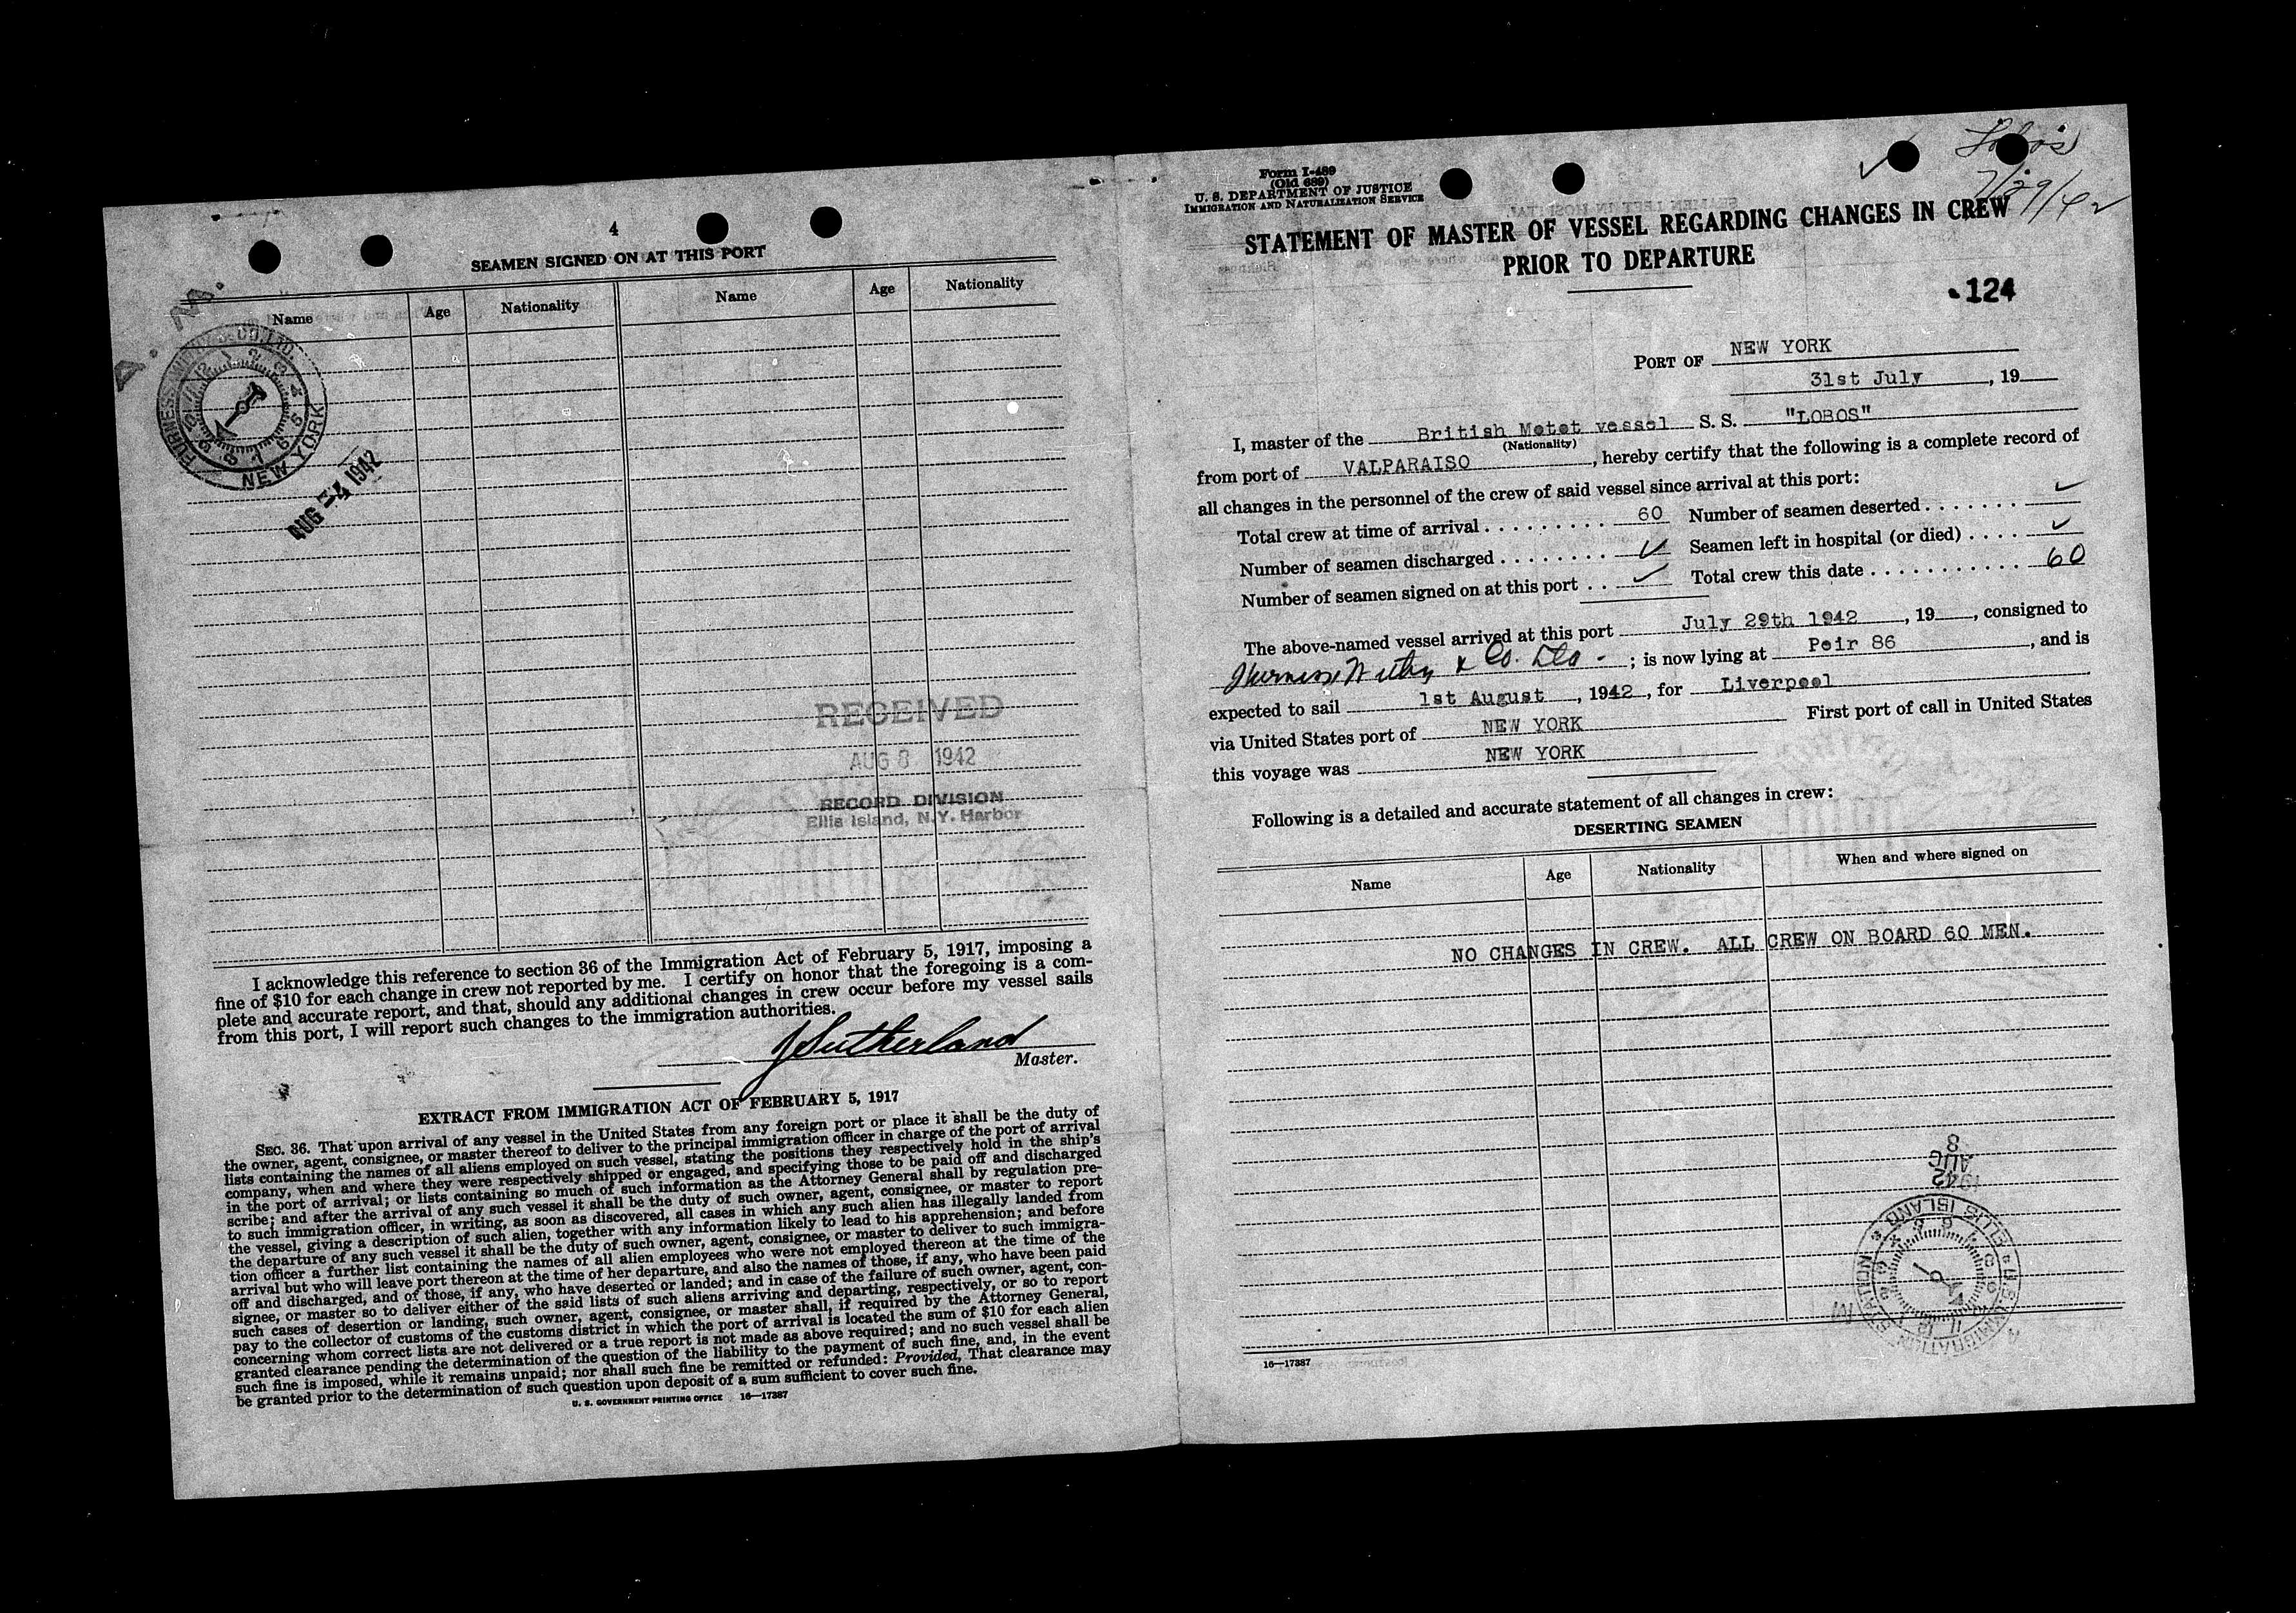 4
SEAMEN SIGNED ON AT THIS PORT
Name Age Nationality Name Age Nationality
A. M.
FURNESS WITHY & CO. LTD.
NEW YORK
AUG -4 1942
RECEIVED
AUG 8 1942
RECORD DIVISION
Ellis Island, N.Y. Harbor
I acknowledge this reference to section 36 of the Immigration Act of February 5, 1917, imposing a
fine of $10 for each change in crew not reported by me. I certify on honor that the foregoing is a com-
plete and accurate report, and that, should any additional changes in crew occur before my vessel sails
from this port, I will report such changes to the immigration authorities.
J Sutherland
Master.
EXTRACT FROM IMMIGRATION ACT OF FEBRUARY 5, 1917
SEC. 36. That upon arrival of any vessel in the United States from any foreign port or place it shall be the duty of
the owner, agent, consignee, or master thereof to deliver to the principal immigration officer in charge of the port of arrival
lists containing the names of all aliens employed on such vessel, stating the positions they respectively hold in the ship's
company, when and where they were respectively shipped or engaged, and specifying those to be paid off and discharged
in the port of arrival; or lists containing so much of such information as the Attorney General shall by regulation pre-
scribe; and after the arrival of any such vessel it shall be the duty of such owner, agent, consignee, or master to report
to such immigration officer, in writing, as soon as discovered, all cases in which any such alien has illegally landed from
the vessel, giving a description of such alien, together with any information likely to lead to his apprehension; and before
the departure of any such vessel it shall be the duty of such owner, agent, consignee, or master to deliver to such immigra-
tion officer a further list containing the names of all alien employees who were not employed thereon at the time of the
arrival but who will leave port thereon at the time of her departure, and also the names of those, if any, who have been paid
off and discharged, and of those, if any, who have deserted or landed; and in case of the failure of such owner, agent, con-
signee, or master so to deliver either of the said lists of such aliens arriving and departing, respectively, or so to report
such cases of desertion or landing, such owner, agent, consignee, or master shall, if required by the Attorney General,
pay to the collector of customs of the customs district in which the port of arrival is located the sum of $10 for each alien
concerning whom correct lists are not delivered or a true report is not made as above required; and no such vessel shall be
granted clearance pending the determination of the question of the liability to the payment of such fine, and, in the event
such fine is imposed, while it remains unpaid; nor shall such fine be remitted or refunded: Provided, That clearance may
be granted prior to the determination of such question upon deposit of a sum sufficient to cover such fine.
U. S. GOVERNMENT PRINTING OFFICE 16—17387
Form I-489
(Old 689)
U. S. DEPARTMENT OF JUSTICE
IMMIGRATION AND NATURALIZATION SERVICE
Lobos
7/29/42
STATEMENT OF MASTER OF VESSEL REGARDING CHANGES IN CREW
PRIOR TO DEPARTURE
124
PORT OF NEW YORK
31st July, 19
I, master of the British Motot vessel S. S. "LOBOS"
(Nationality)
from port of VALPARAISO, hereby certify that the following is a complete record of
all changes in the personnel of the crew of said vessel since arrival at this port:
Total crew at time of arrival . . . . . . . . . 60 Number of seamen deserted . . . . . . . ✓
Number of seamen discharged . . . . . . . . ✓ Seamen left in hospital (or died) . . . . ✓
Number of seamen signed on at this port . . ✓ Total crew this date . . . . . . . . . . . . 60
The above-named vessel arrived at this port July 29th 1942, 19, consigned to
Furness Withy & Co. Ltd - ; is now lying at Peir 86, and is
expected to sail 1st August, 1942, for Liverpool
via United States port of NEW YORK First port of call in United States
this voyage was NEW YORK
Following is a detailed and accurate statement of all changes in crew:
DESERTING SEAMEN
Name Age Nationality When and where signed on
NO CHANGES IN CREW. ALL CREW ON BOARD 60 MEN.
1942
AUG
8
U.S. IMMIGRATION STATION
ELLIS ISLAND
16—17387